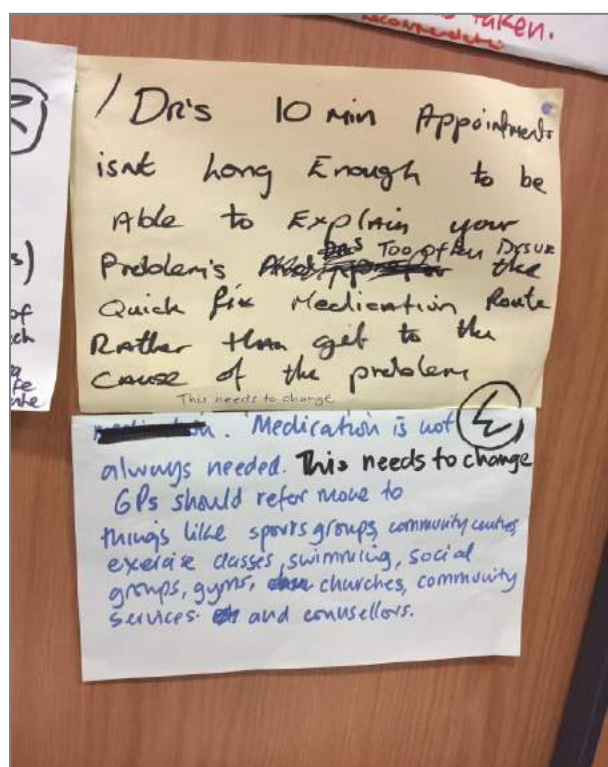 taken.
/ DR's 10 min Appointments
isnt Long Enough to be
Able to Explain your
Problem's Too often Drs use the
Quick fix Medication Route
Rather than get to the
Cause of the problem
This needs to change
. Medication is not
always needed. This needs to change
GPs should refer more to
things like sports groups, community centres,
exercise classes, swimming, social
groups, gyms, churches, community
services and counsellors.
s)
of